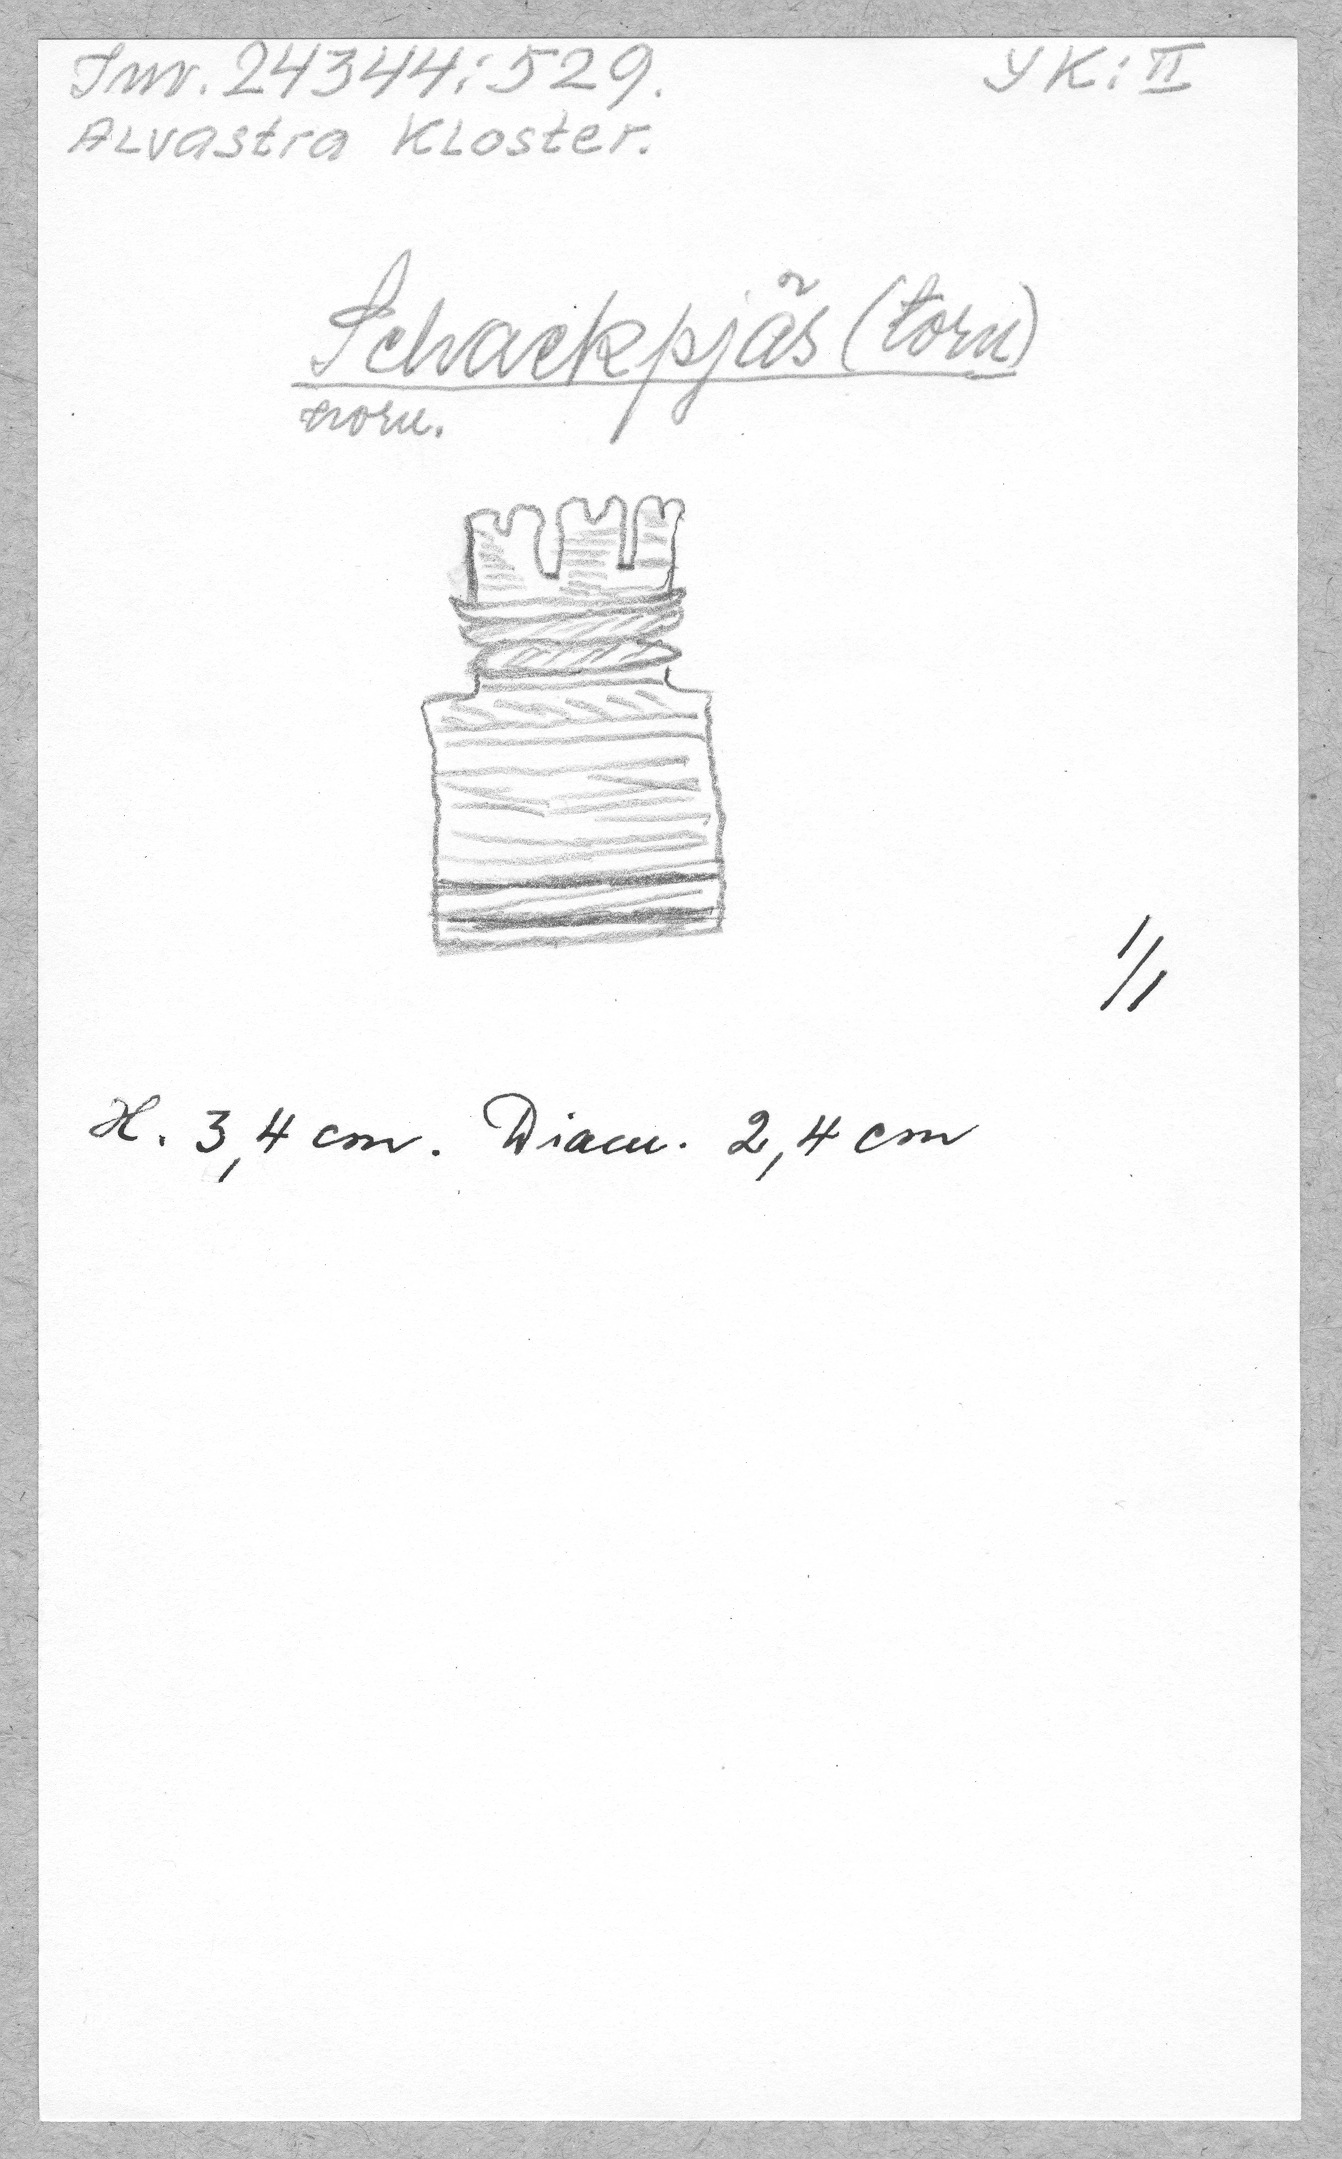 Inv. 24344:529.
YK:II
Alvastra Kloster.
Schackpjäs (torn)
1/1
H. 3,4 cm. Diam. 2,4 cm